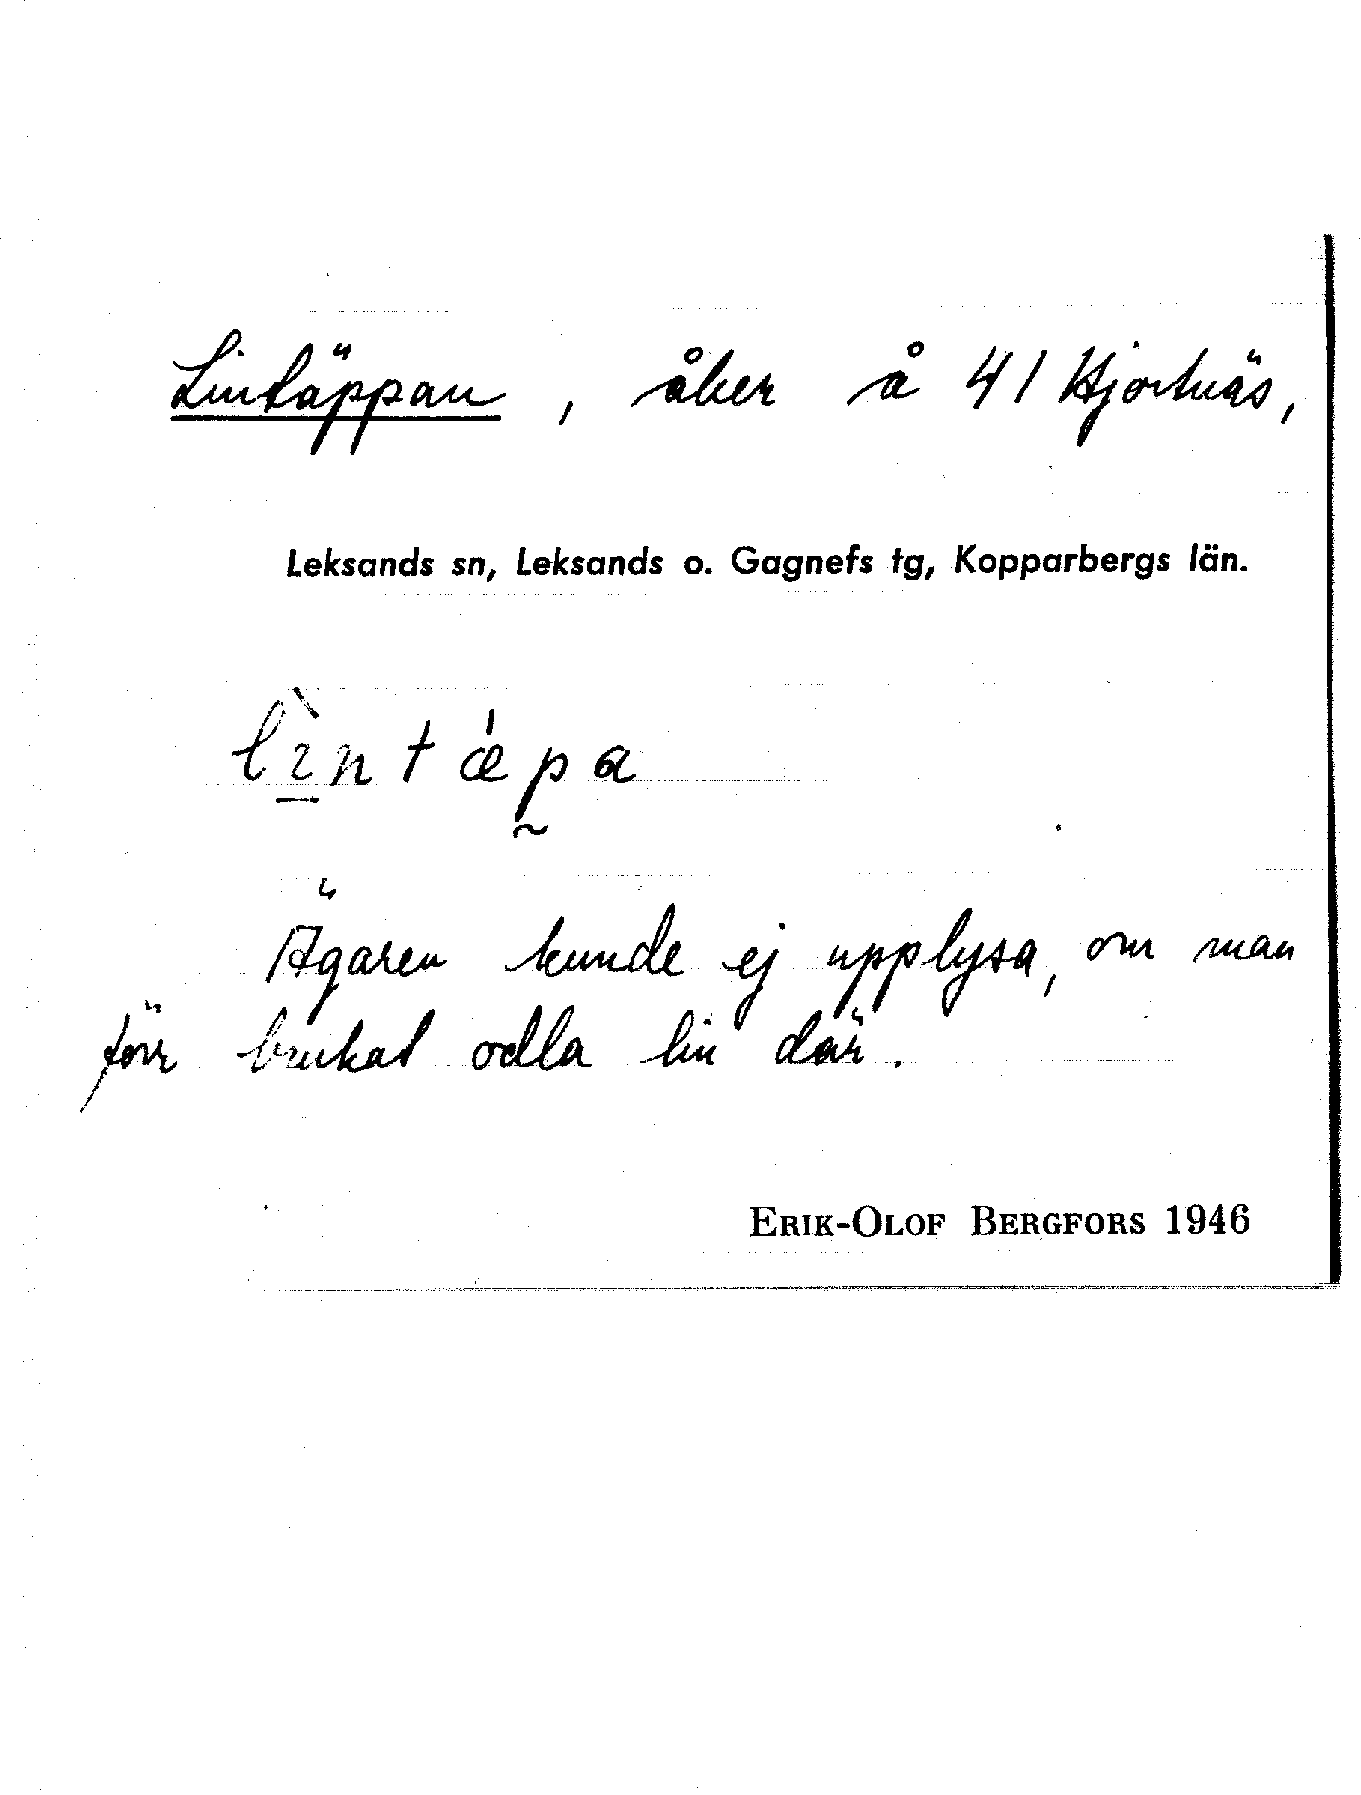 Lintäppan, åker å 41 Hjortnäs,
Leksands sn, Leksands o. Gagnefs tg, Kopparbergs län.
lìntǽpa
Ägaren kunde ej upplysa, om man
förr brukat odla lin där.
ERIK-OLOF BERGFORS 1946